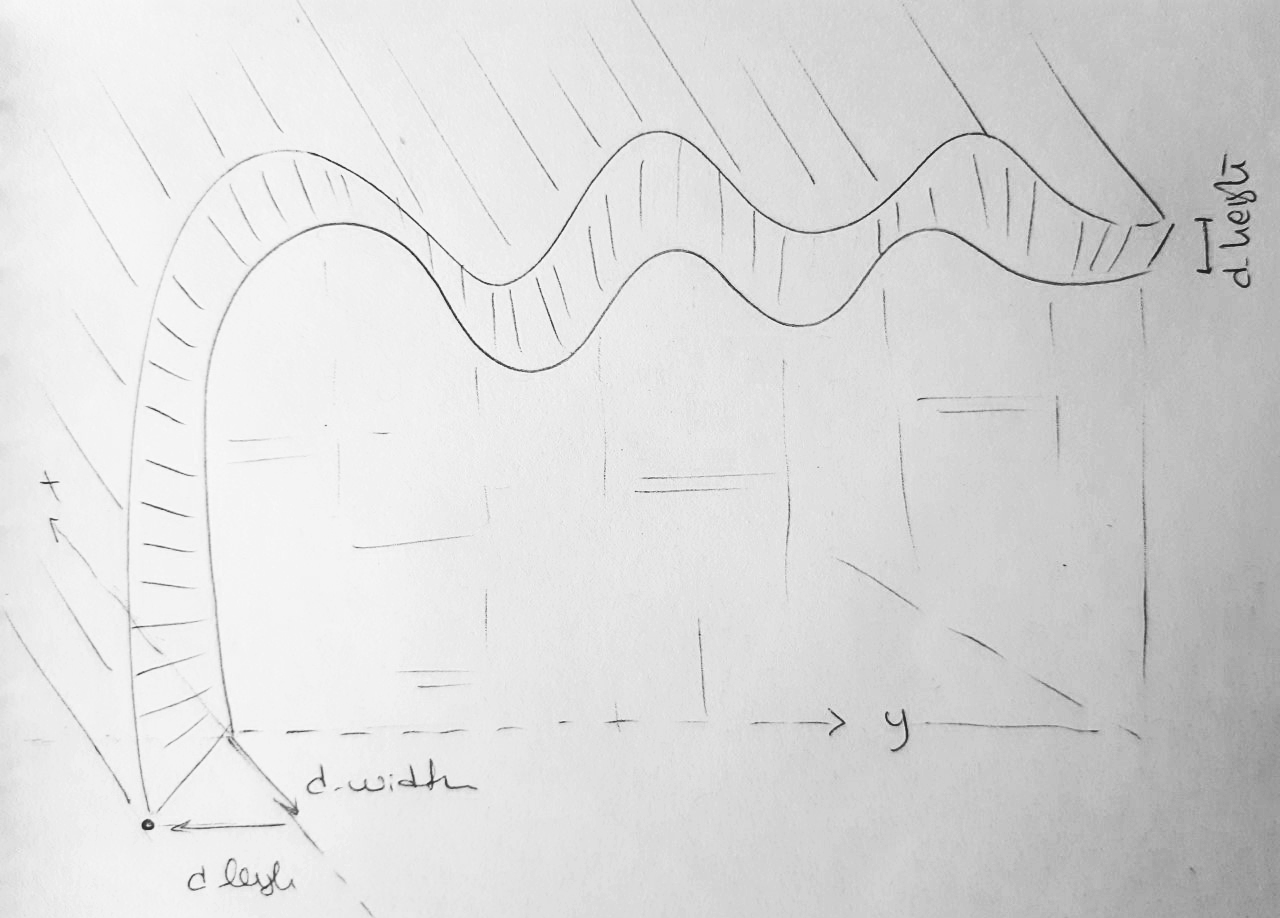 d-height
x
y
d-width
d legh